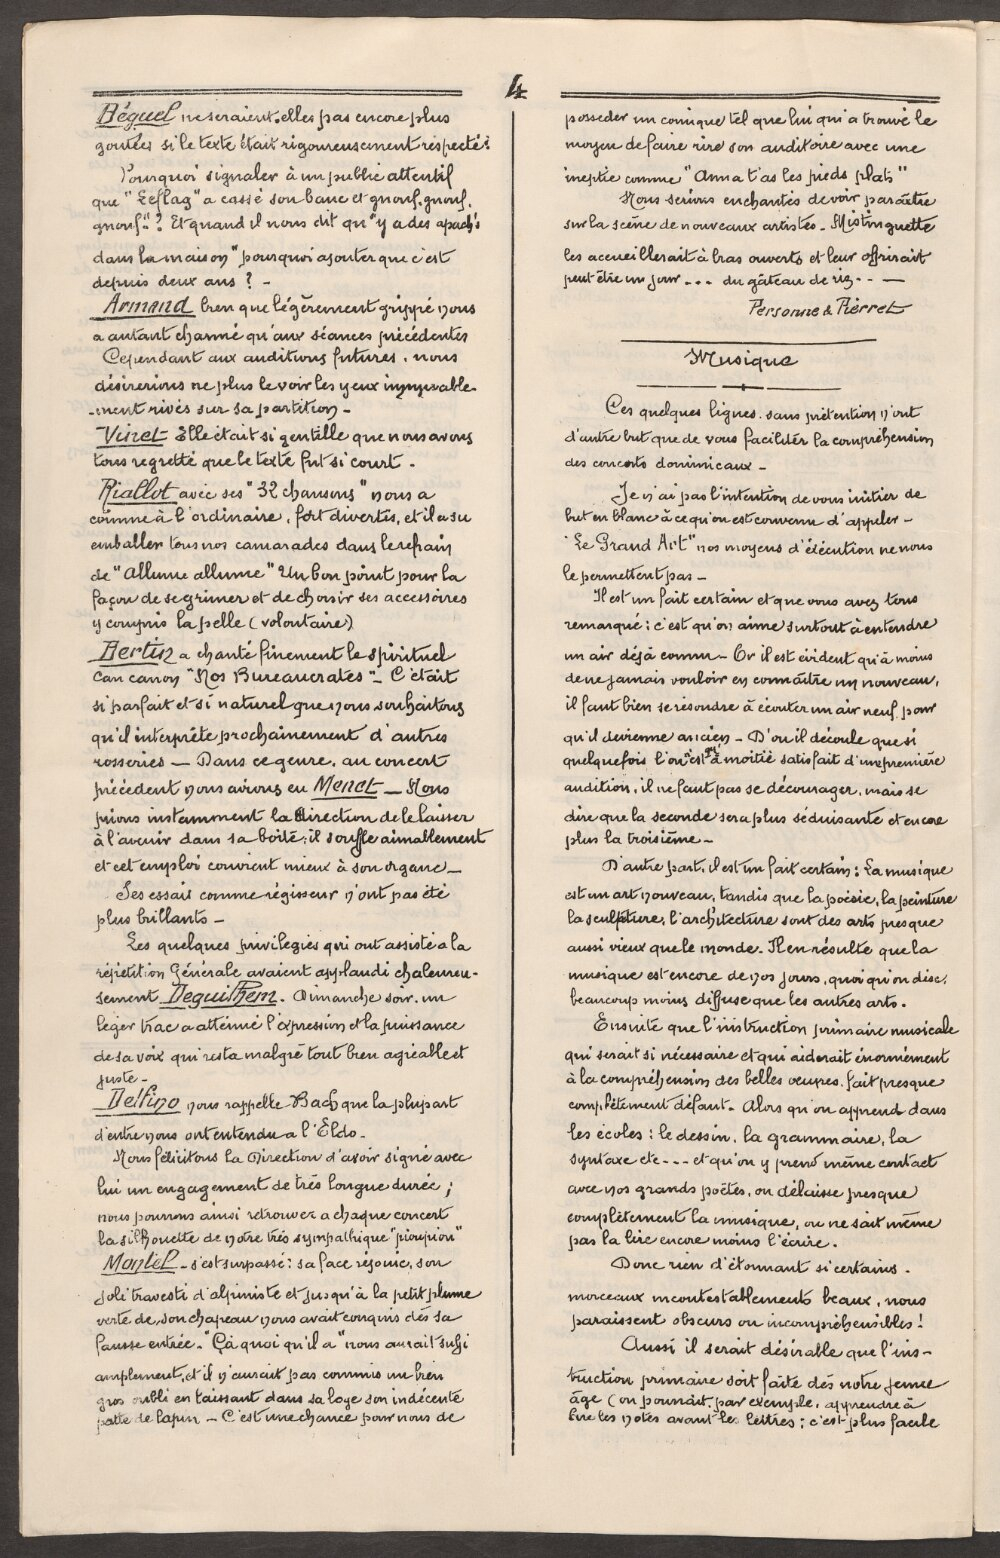 4
Béguel ne seraient-elles pas encore plus
goutées si le texte était rigoureusement respecté?
Pourquoi signaler à un public attentif
que "Leflag" a cassé son banc et gnouf, gnouf,
gnouf"? Et quand il nous dit qu "y a des apach's
dans la maison" pourquoi ajouter que c'est
depuis deux ans ? -
Armand bien que légèrement grippé nous
a autant charmé qu'aux séances précédentes
Cependant aux auditions futures, nous
désirerions ne plus le voir les yeux immuable-
-ment rivés sur sa partition -
Vinet Elle était si gentille que nous avons
tous regretté que le texte fut si court.
Riallot avec ses "32 chansons" nous a
comme à l'ordinaire, fort divertis, et il a su
emballer tous nos camarades dans le refrain
de "Allume allume" Un bon point pour la
façon de se grimer et de choisir ses accessoires
y compris la pelle (volontaire)
Bertin a chanté finement le spirituel
can canon "Nos Bureaucrates" - C'était
si parfait et si naturel que nous souhaitons
qu'il interprète prochainement d'autres
rosseries — Dans ce genre, au concert
précédent nous avions eu Menet — Nous
prions instamment la Direction de le laisser
à l'avenir dans sa boîte; il souffle aimablement
et cet emploi convient mieux à son organe —
Ses essais comme régisseur n'ont pas été
plus brillants -
Les quelques privilégiés qui ont assisté a la
répétition Générale avaient applaudi chaleureu-
sement Deguilhem. Dimanche soir, un
léger trac a atténué l'expression et la puissance
de sa voix qui resta malgré tout bien agréable et
juste -
Delfino nous rappelle Bach que la plupart
d'entre nous ont entendu a l'Eldo.
Nous félicitons la Direction d'avoir signé avec
lui un engagement de très longue durée ;
nous pourrons ainsi retrouver a chaque concert
la silhouette de notre très sympathique "pioupiou"
Montel - s'est surpassé: sa face réjouie, son
joli travesti d'alpiniste et jusqu'à la petit plume
verte de son chapeau nous avait conquis dès sa
fausse entrée. "Çà quoi qu'il a" nous aurait suffi
amplement, et il n'aurait pas commis un bien
gros oubli en laissant dans sa loge son indécente
patte de lapin. - C'est une chance pour nous de
posséder un comique tel que lui qui a trouvé le
moyen de faire rire son auditoire avec une
ineptie comme "Anna t'as les pieds plats"
Nous serions enchantés de voir paraître
sur la scène de nouveaux artistes. Mistinguette
les accueillerait à bras ouverts et leur offrirait
peut être un jour ... du gâteau de riz. - —
Personne & Pierret
Musique
Ces quelques lignes sans prétention n'ont
d'autre but que de vous faciliter la compréhension
des concerts dominicaux -
Je n'ai pas l'intention de vous initier de
but en blanc à ce qu'on est convenu d'appeler -
"Le Grand Art" nos moyens d'éxécution ne nous
le permettent pas -
Il est un fait certain et que vous avez tous
remarqué : c'est qu'on aime surtout à entendre
un air déjà connu - Or il est évident qu'à moins
de ne jamais vouloir en connaître un nouveau,
il faut bien se résoudre à écouter un air neuf pour
qu'il devienne ancien - D'ou il découle que si
quelquefois l'on n'est qu'à moitié satisfait d'une première
audition, il ne faut pas se décourager, mais se
dire que la seconde sera plus séduisante et encore
plus la troisième -
D'autre part, il est un fait certain: La musique
est un art nouveau, tandis que la poésie, la peinture
la sculpture, l'architecture sont des arts presque
aussi vieux que le monde. Il en résulte que la
musique est encore de nos jours, quoi qu'on dise,
beaucoup moins diffuse que les autres arts.
Ensuite que l'instruction primaire musicale
qui serait si nécessaire et qui aiderait énormément
à la compréhension des belles œuvres, fait presque
complètement défaut. Alors qu'on apprend dans
les écoles : le dessin, la grammaire, la
syntaxe etc --- et qu'on y prend même contact
avec nos grands poètes, on délaisse presque
complètement la musique, on ne sait même
pas la lire encore moins l'écrire.
Donc rien d'étonnant si certains.
morceaux incontestablements beaux, nous
paraissent obscurs ou incompréhensibles!
Aussi il serait désirable que l'ins-
truction primaire soit faite dès notre jeune
âge (on pourrait, par exemple, apprendre à
lire les notes avant les lettres ; c'est plus facile